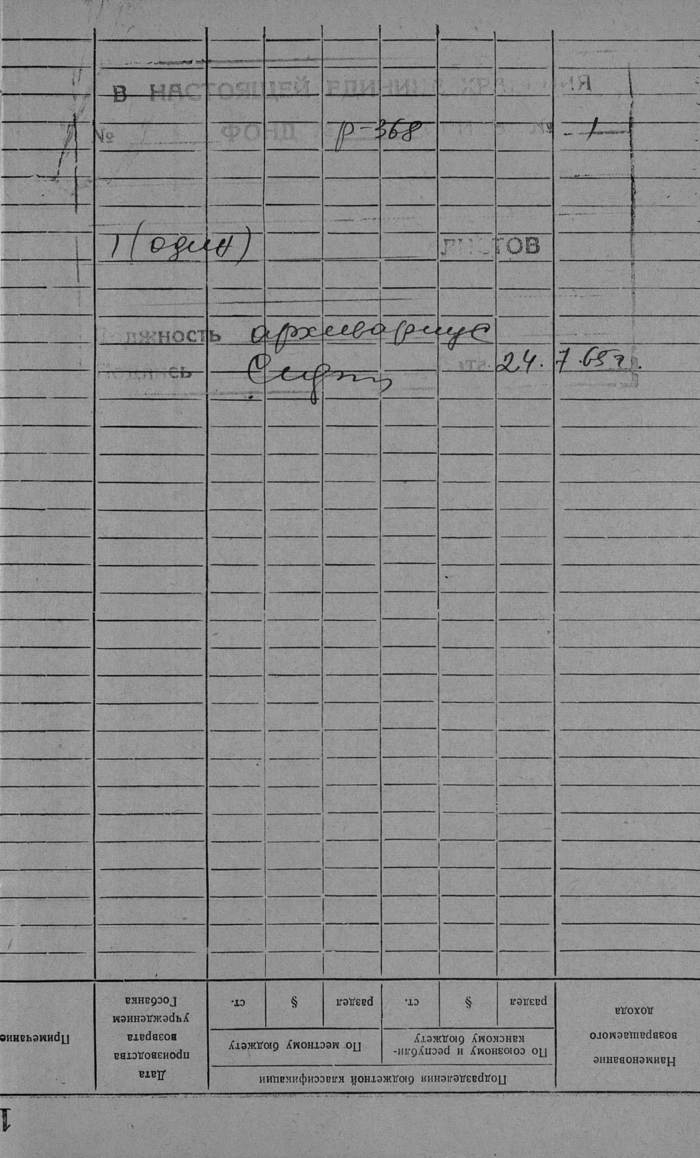 В НАСТОЯЩЕЙ ЕДИНИЦЕ ХРАНЕНИЯ
№ ФОНД р-368 № 1
1 (один) ЛИСТОВ
Должность архивариус
Подпись 24.7.65 г.
Наименование возвращаемого дохода
Подразделения бюджетной классификации
По союзному и республи-
канскому бюджету
раздел § ст.
По местному бюджету
раздел § ст.
Дата
производства
возврата
учреждением
Госбанка
Примечание
1